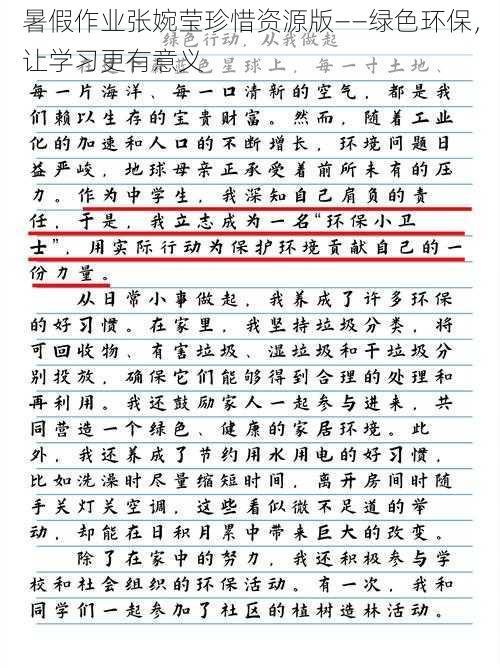 暑假作业张婉莹珍惜资源版——绿色环保，
让学习更有意义
绿色行动，从我做起
在这个蓝色星球上，每一寸土地、
每一片海洋、每一口清新的空气，都是我
们赖以生存的宝贵财富。然而，随着工业
化的加速和人口的不断增长，环境问题日
益严峻，地球母亲正承受着前所未有的压
力。作为中学生，我深知自己肩负的责
任，于是，我立志成为一名“环保小卫
士”，用实际行动为保护环境贡献自己的一
份力量。
从日常小事做起，我养成了许多环保
的好习惯。在家里，我坚持垃圾分类，将
可回收物、有害垃圾、湿垃圾和干垃圾分
别投放，确保它们能够得到合理的处理和
再利用。我还鼓励家人一起参与进来，共
同营造一个绿色、健康的家居环境。此
外，我还养成了节约用水用电的好习惯，
比如洗澡时尽量缩短时间，离开房间时随
手关灯关空调，这些看似微不足道的举
动，却能在日积月累中带来巨大的改变。
除了在家中的努力，我还积极参与学
校和社会组织的环保活动。有一次，我和
同学们一起参加了社区的植树造林活动。